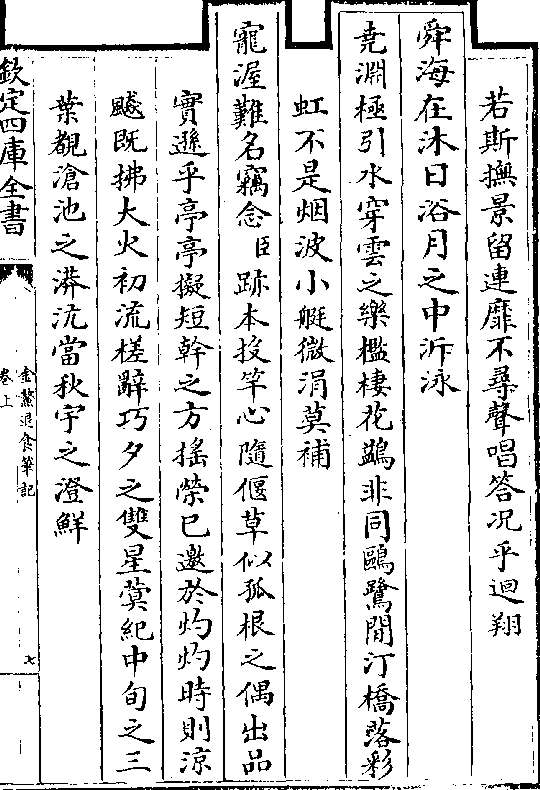 若斯撫景留連靡不尋聲唱答况乎迴翔
舜海在沐日浴月之中泝泳
堯淵極引水穿雲之樂檻棲花鷁非同鷗鷺閒汀橋落彩
虹不是烟波小艇微涓莫補
寵渥難名竊念臣跡本投竿心隨偃草似孤根之偶出品
實遜乎亭亭擬短幹之方搖榮已邀於灼灼時則涼
飈既拂大火初流槎辭巧夕之雙星蓂紀中旬之三
葉覩滄池之漭沆當秋宇之澄鮮
欽定四庫全書
金鰲退食筆記
卷上
七